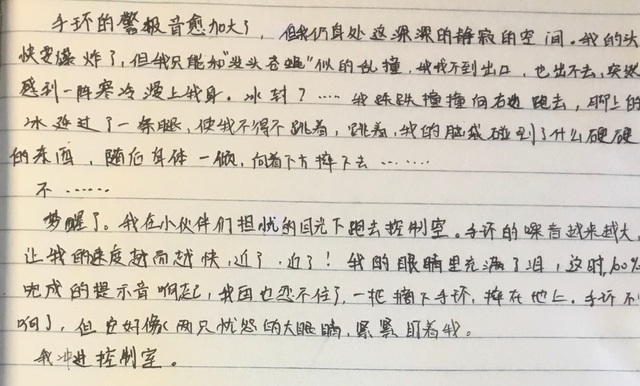 手环的警报音愈加大了，但我仍身处这深深的静寂的空间。我的头
快要爆炸了，但我只能如"没头苍蝇"似的乱撞，我找不到出口，也出不去，突然
感到一阵寒冷漫上我身。冰封？……我跌跌撞撞向右边跑去，脚上的
冰延过了一条腿，使我不得不跳着，跳着，我的脑袋碰到了什么硬硬
的东西，随后身体一倾，向着下方摔下去……
不……
梦醒了。我在小伙伴们担忧的目光下跑去控制室。手环的噪音越来越大，
让我的速度越而越快，近了，近了！我的眼睛里充满了泪，这时，60%
完成的提示音响起，我再也忍不住了，一把摘下手环，摔在地上。手环不
响了，但它好像两只忧怨的大眼睛，紧紧盯着我。
我冲进控制室。